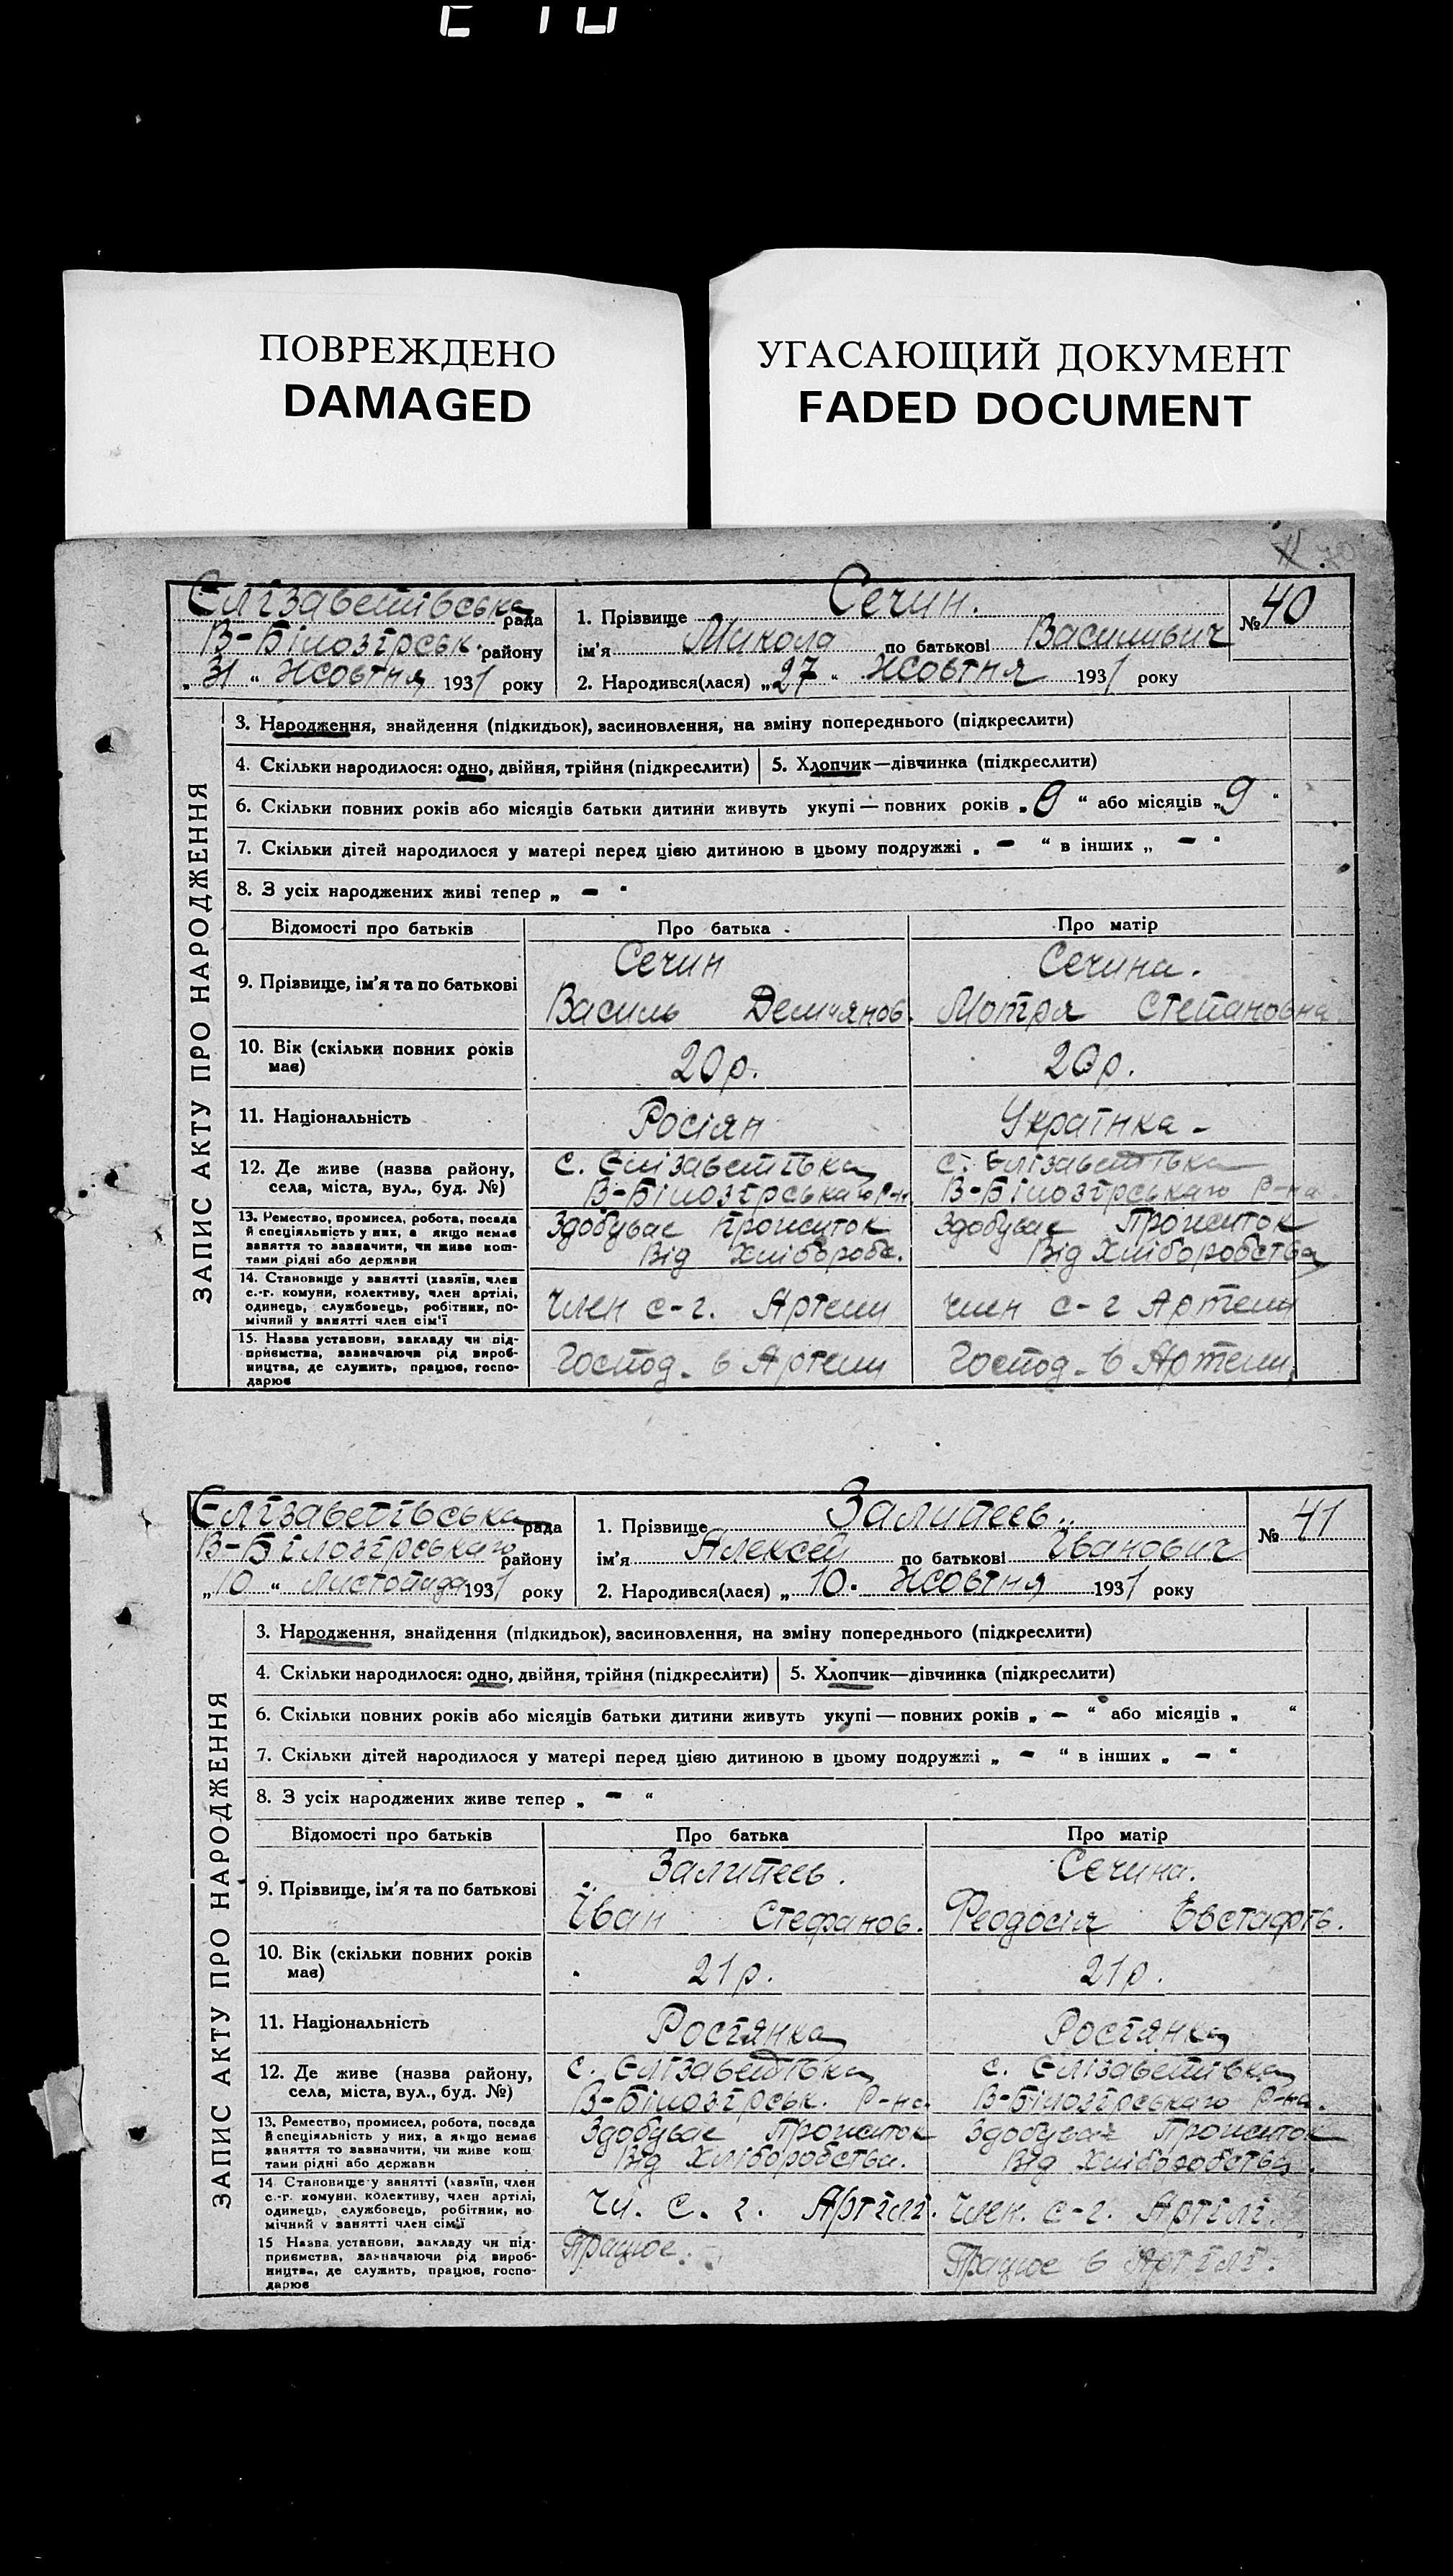 ПОВРЕЖДЕНО
DAMAGED
УГАСАЮЩИЙ ДОКУМЕНТ
FADED DOCUMENT
ЗАПИС АКТУ ПРО НАРОДЖЕННЯ
Єлізаветівська рада
В-Білозірськ. району
„ 31 “ Жовтня 1931 року
1. Прізвище Сечин.
ім'я Микола по батькові Васильвич
№ 40
2. Народився(лася) „ 27 “ Жовтня 1931 року
3. Народження, знайдення (підкидьок), васиновлення, на зміну попереднього (підкреслити)
4. Скільки народилося: одно, двійня, трійня (підкреслити) 5. Хлопчик—дівчинка (підкреслити)
6. Скільки повних років або місяців батьки дитини живуть укупі — повних років „ 0 “ або місяців „ 9 “
7. Скільки дітей народилося у матері перед цією дитиною в цьому подружжі „ — “ в інших „ — “
8. З усіх народжених живі тепер „ — “
Відомості про батьків Про батька Про матір
9. Прізвище, ім'я та по батькові
Сечин
Василь Демьянов.
Сечина.
Мотря Степановна
10. Вік (скільки повних років має) 20 р. 20 р.
11. Національність Росіян Українка –
12. Де живе (назва району, села, міста, вул., буд. №)
с. Єлізаветівка
В-Білозірськаго Р-н.
с. Єлізаветівка
В-Білозірськаго Р-на.
13. Ремество, промисел, робота, посада
й спеціяльність у них, а якщо немає
заняття то зазначити, чи живе кош-
тами рідні або держави
Здобувае прожиток
Від Хлібороб.
Здобувае Прожиток
Від Хліборобства
14. Становище у занятті (хазяїн, член
с.-г. комуни, колективу, член артілі,
одинець, службовець, робітник, по-
мічний у занятті член сім'ї
Член с-г. Артели
член с-г Артели
15. Назва установи, закладу чи під-
приємства, зазначаючи рід вироб-
ництва, де служить, працює, госпо-
дарює
Господ. в Артели
Господ. в Артели
ЗАПИС АКТУ ПРО НАРОДЖЕННЯ
Єлізаветівська рада
В-Білозірськаго району
„ 10 “ Листопада 1931 року
1. Прізвище Залипеев.
ім'я Алексей по батькові Іванович
№ 41
2. Народився(лася) „ 10. Жовтня 1931 року
3. Народження, знайдення (підкидьок), васиновлення, на зміну попереднього (підкреслити)
4. Скільки народилося: одно, двійня, трійня (підкреслити) 5. Хлопчик—дівчинка (підкреслити)
6. Скільки повних років або місяців батьки дитини живуть укупі — повних років „ — “ або місяців „ “
7. Скільки дітей народилося у матері перед цією дитиною в цьому подружжі „ — “ в інших „ — “
8. З усіх народжених живе тепер „ — “
Відомості про батьків Про батька Про матір
9. Прізвище, ім'я та по батькові
Залипеев.
Їван Стефанов.
Сечина.
Феодосія Евстафїв.
10. Вік (скільки повних років має) 21 р. 21 р.
11. Національність Росіянка Росіянка
12. Де живе (назва району, села, міста, вул., буд. №)
с. Єлізаветівка
В-Білозірськ. Р-на.
с. Єлізаветівка
В-Білозірськаго Р-на.
13. Ремество, промисел, робота, посада
й спеціяльність у них, а якщо немає
заняття то зазначити, чи живе кош
тами рідні або держави
Здобувае Прожиток
Від Хліборобства.
Здобувае Прожиток
Від Хліборобства.
14. Становище у занятті (хазяїн, член
с.-г. комуни, колективу, член артілі,
одинець, службовець, робітник, по
мічний у занятті член сім'ї
Чл. с. г. Артілі.
Член. с-г. Артілі.
15 Назва установи, закладу чи під-
приємства, зазначаючи рід вироб-
ництва, де служить, працює, госпо-
дарює
Працює.
Працює в Артілі.